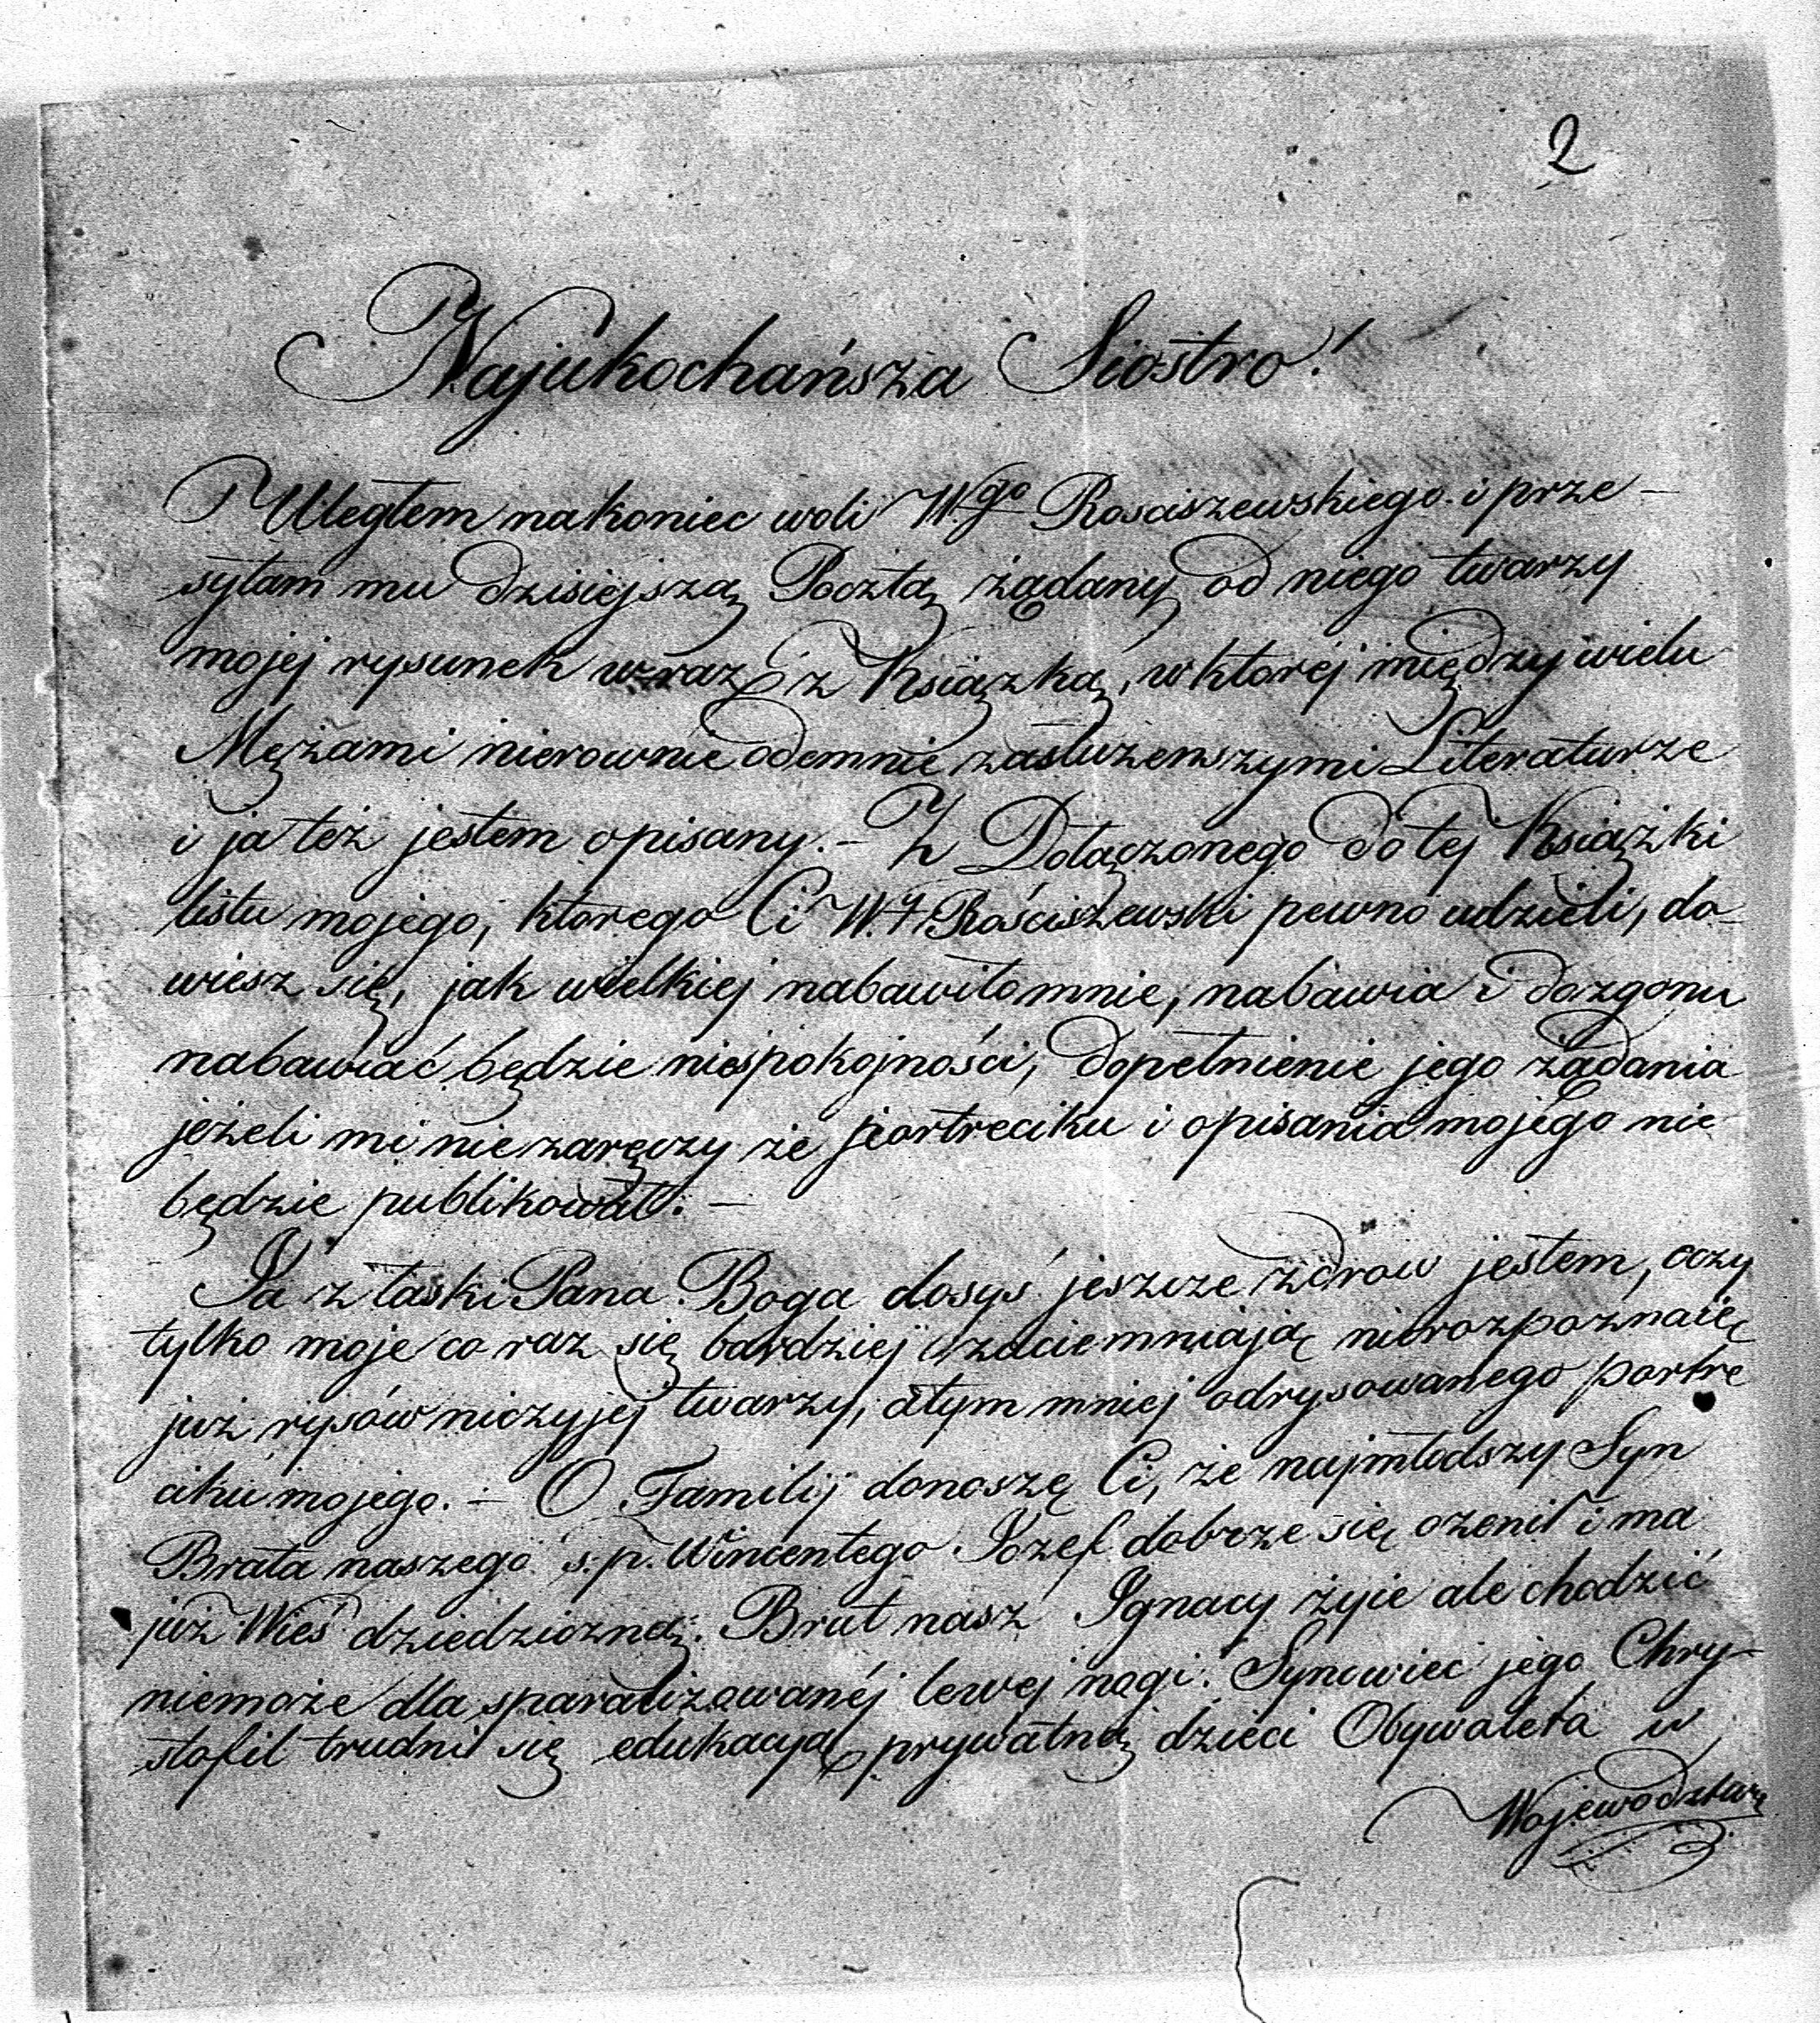 2
Najukochańsza Siostro!
Uległem nakoniec woli W.go Rosciszewskiego i prze-
syłam mu dzisiejszą Pocztą żądany od niego twarzy
mojej rysunek wraz z Książką, w ktorej między wielu
Mężami nierownie odemnie zasłużenszymi Literaturze
i ja też jestem opisany. – Z Dołączonego do tej Książki
listu mojego, ktorego Ci W. Rościszewski pewno udzieli, do-
wiesz się, jak wielkiej nabawiło mnie, nabawia i do zgonu
nabawiać będzie niespokojności, dopełnienie jego żądania
jeżeli mi nie zaręczy że portreciku i opisania mojego nie
będzie publikował. –
Ja z łaski Pana Boga dosyś jeszcze zdrow jestem, oczy
tylko moje co raz się bardziej zaciemniają nierozpoznaię
już rysów niczyjej twarzy, a tym mniej odrysowanego portre
ciku mojego. – O Familij donoszę Ci, że najmłodszy Syn
Brata naszego ś. p. Wincentego Jozef dobrze się ożenił i ma
już Wieś dziedziczną. Brat nasz Ignacy żyie ale chodzić
niemoże dla sparaliżowanéj lewej nogi. Synowiec jego Chry-
stofil trudni się edukacyą prywatną dzieci Obywatela w
Wojewodztwie